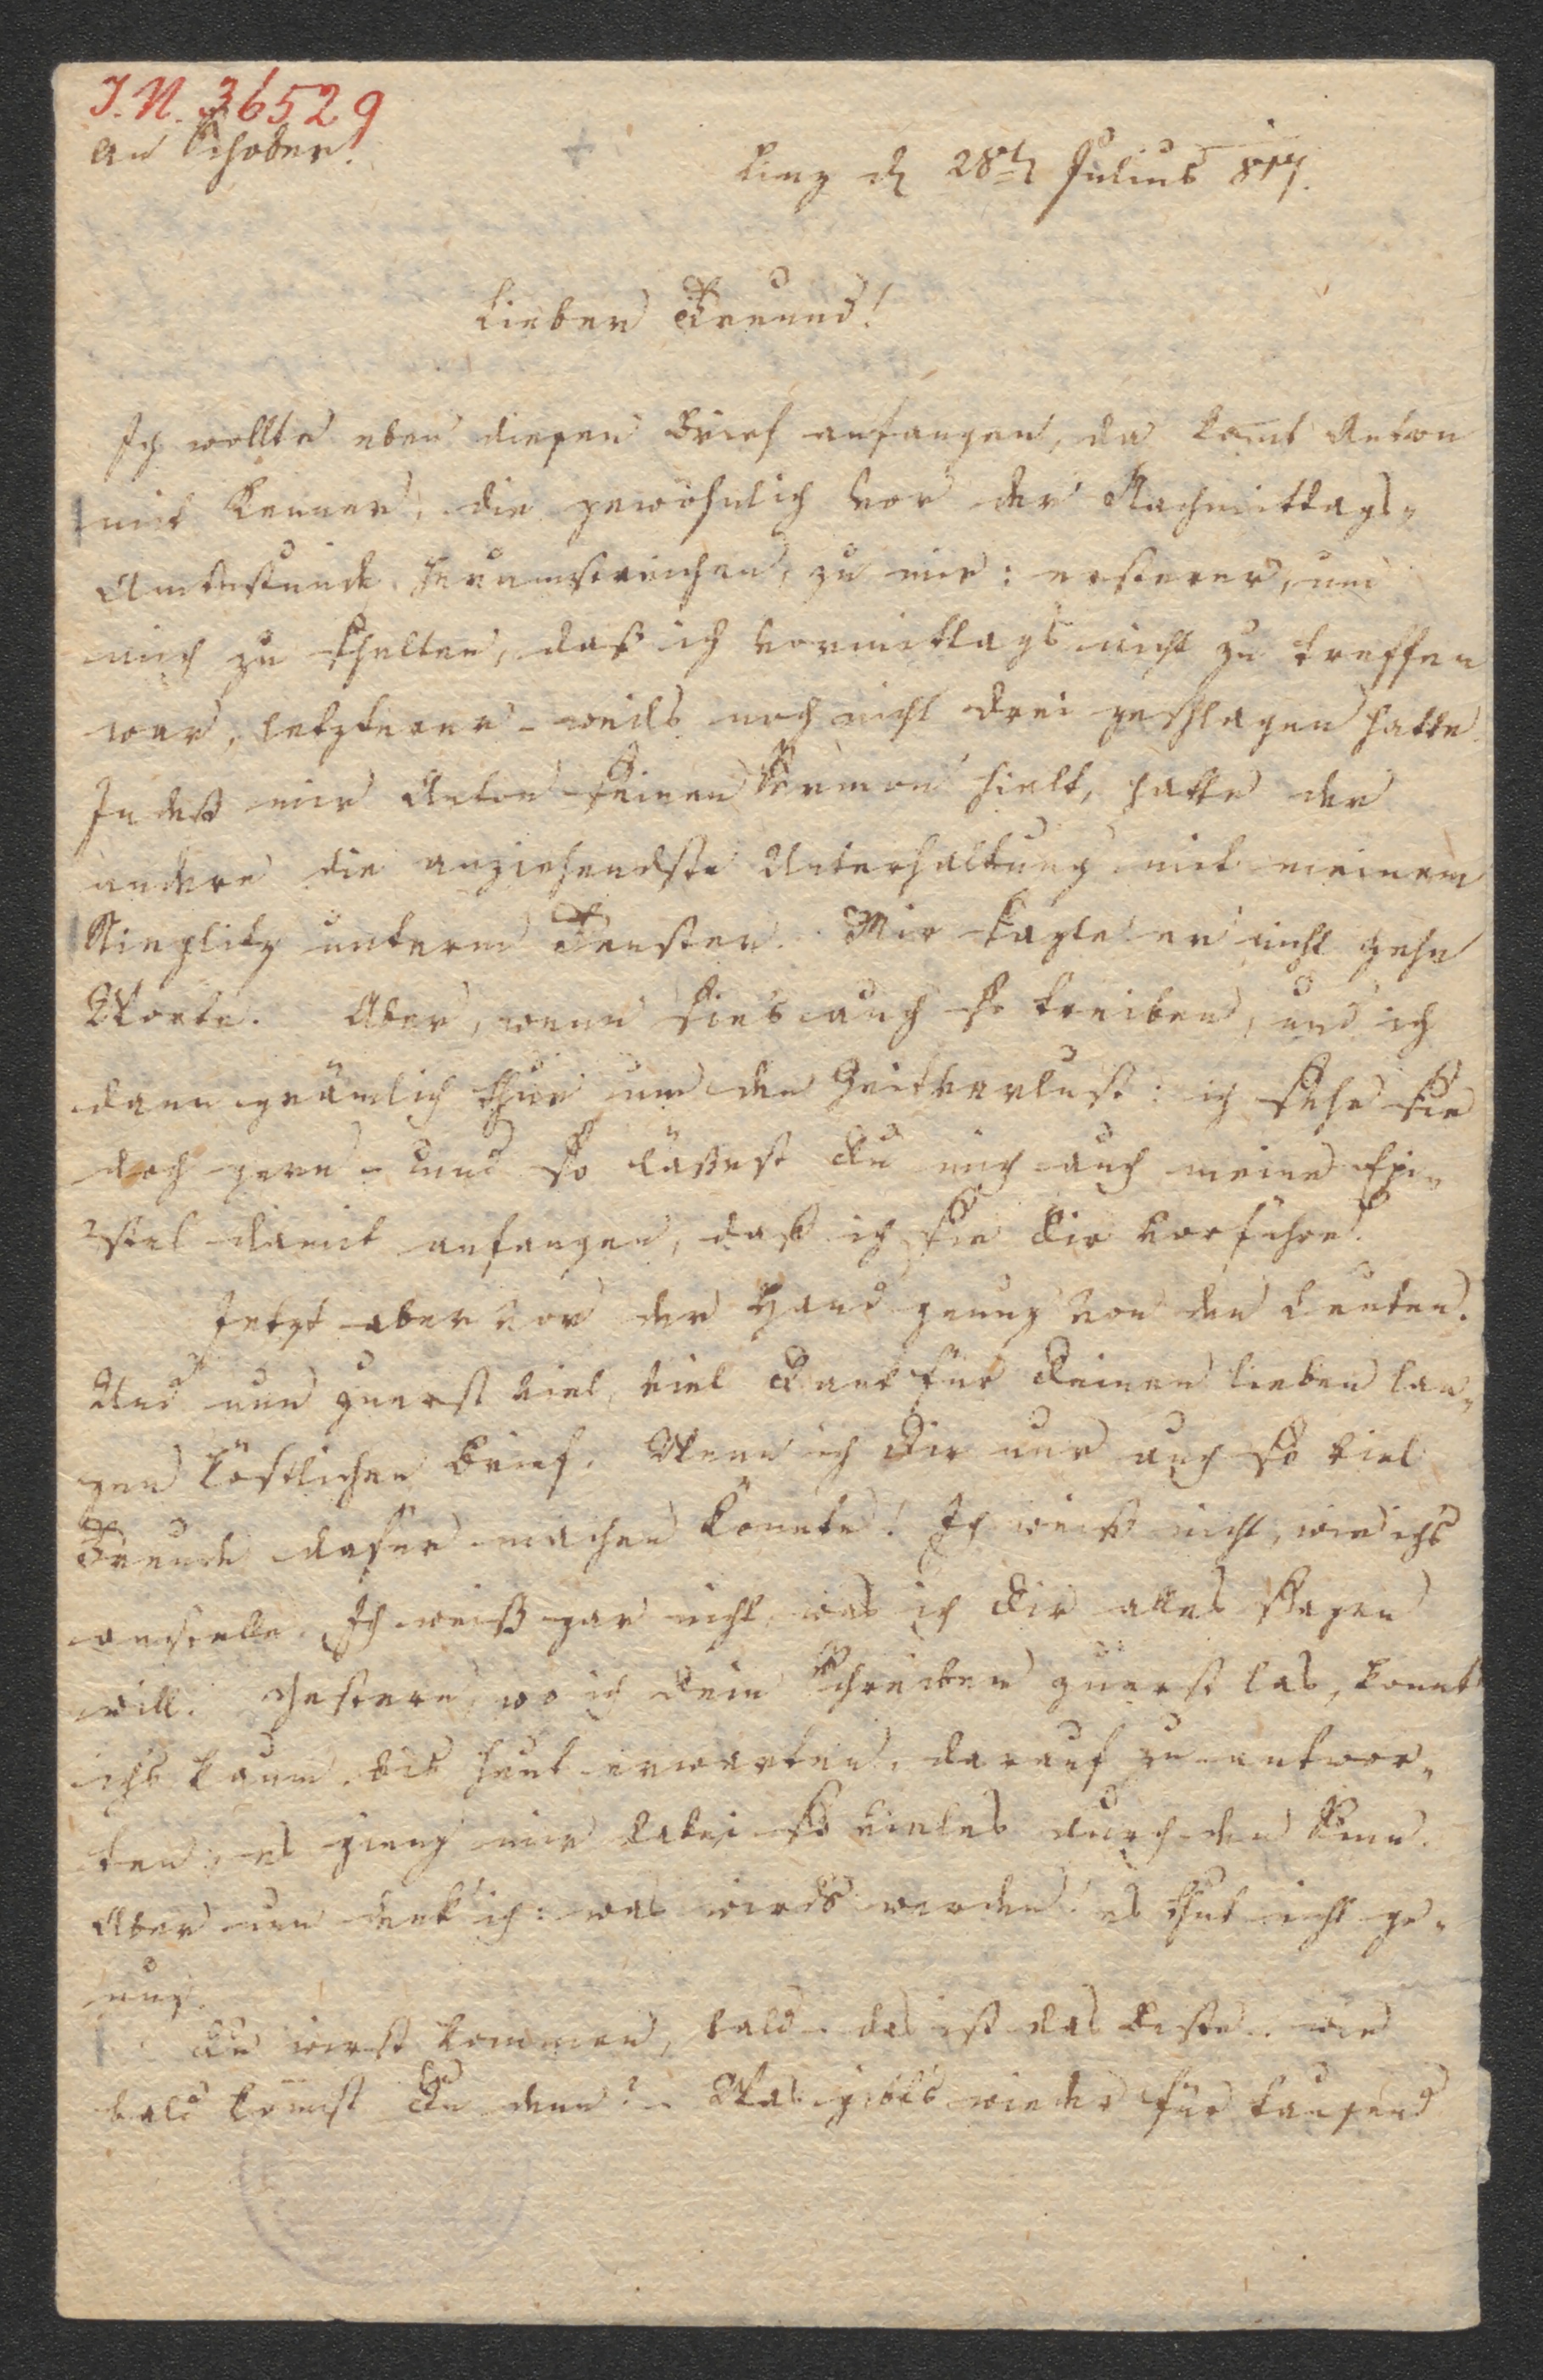 I. N. 36529
An Schober.
Linz d 28t Julius 817.
Lieber Freund!
Ich wollte eben diesen Brief anfangen, da kom̅t Anton
mit Kenner, die gewöhnlich vor der Nachmittags-
Amtsstunde herumstreichen, zu mir: ersterer, um
mich zu schelten, daß ich vormittags nicht zu treffen
war, letzterer – weils noch nicht drei geschlagen hatte.
Indeß mir Anton seinen Sermon hielt, hatte der
andere die anziehendste Unterhaltung mit meinem
Stieglitz unterm Fenster. Mir sagte er nicht zehn
Worte. Aber, wenn sie's auch so treiben, und ich
dann grämlich thue um den Zeitverlust: ich sehe sie
doch gern – und so lässest du mich auch meine Epi-
stel damit anfangen, daß ich sie dir vorführe.
Jetzt aber vor der Hand genug von den Leuten.
Und nun zuerst viel, viel Dank für deinen lieben lan-
gen köstlichen Brief. Wenn ich dir nur auch so viel
Freude dafür machen könnte! Ich weiß nicht, wie ichs
anstelle. Ich weiß gar nicht, was ich dir alles sagen
will. Gestern, wo ich dein Schreiben zuerst las, konnt
ichs kaum bis heut erwarten, darauf zu antwor-
ten, es gieng mir dabei so vieles durch den Sinn.
Aber nun denk ich: was wirds werden! es thut nicht ge-
nug.
Du wirst kommen, bald – das ist das Beste – wie
bald kom̅st du denn? – Was gibts wieder für tausend